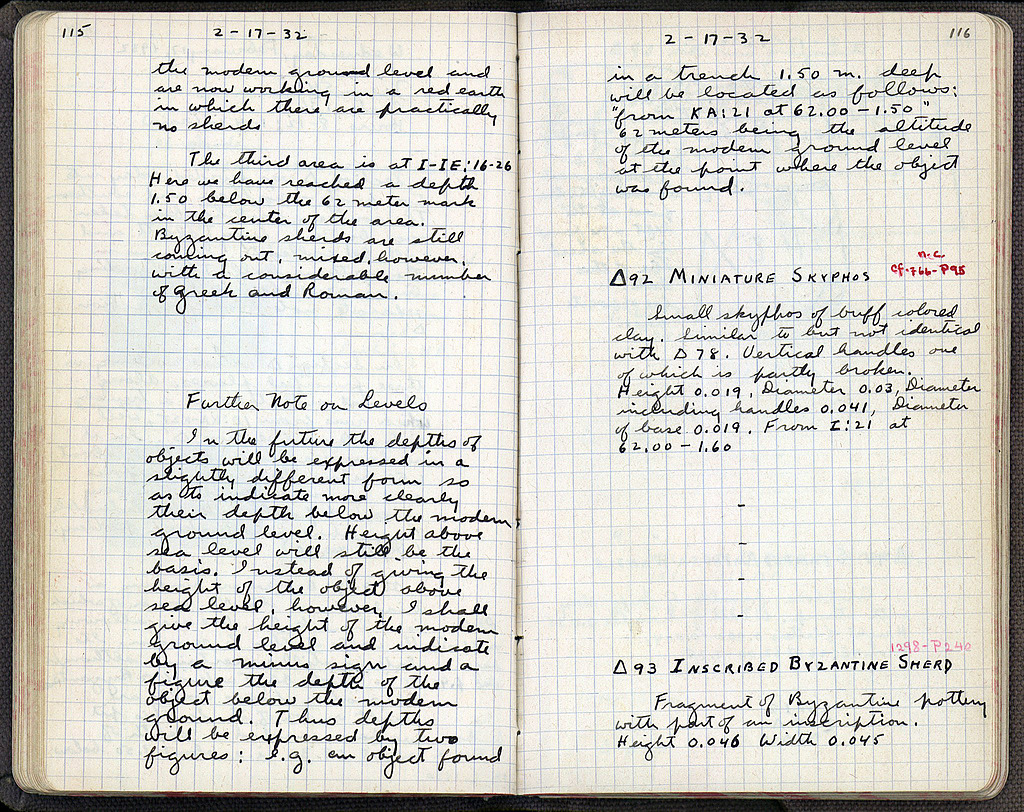 115
2-17-32
the modern ground level and
are now working in a red earth
in which there are practically
no sherds
The third area is at I-IE:16-26
Here we have reached a depth
1.50 below the 62 meter mark
in the center of the area.
Byzantine sherds are still
coming out, mixed, however,
with a considerable number
of Greek and Roman.
Further Note on Levels
In the future the depths of
objects will be expressed in a
slightly different form so
as to indicate more clearly
their depth below the modern
ground level. Height above
sea level will still be the
basis. Instead of giving the
height of the object above
sea level, however, I shall
give the height of the modern
ground level and indicate
by a minus sign and a
figure the depth of the
object below the modern
ground. Thus depths
will be expressed by two
figures: e.g. an object found
2-17-32
116
in a trench 1.50 m. deep
will be located as follows:
"from KA:21 at 62.00-1.50"
62 meters being the altitude
of the modern ground level
at the point where the object
was found.
n.c.
cf.766-P95
Δ92 MINIATURE SKYPHOS
Small skyphos of buff colored
clay. Similar to but not identical
with Δ78. Vertical handles one
of which is partly broken.
Height 0.019, Diameter 0.03, Diameter
including handles 0.041, Diameter
of base 0.019. From I:21 at
62.00-1.60
-
-
-
-
1298-P240
Δ93 INSCRIBED BYZANTINE SHERD
Fragment of Byzantine pottery
with part of an inscription.
Height 0.046 Width 0.045